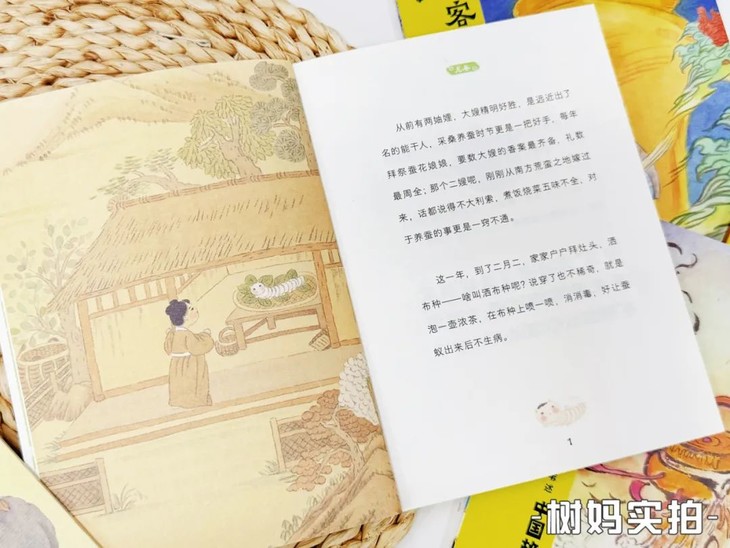 客
从前有两妯娌，大嫂精明好胜，是远近出了
名的能干人，采桑养蚕时节更是一把好手，每年
拜祭蚕花娘娘，要数大嫂的香案最齐备，礼数
最周全；那个二嫂呢，刚刚从南方荒蛮之地嫁过
来，话都说得不大利索，煮饭烧菜五味不全，对
于养蚕的事更是一窍不通。
这一年，到了二月二，家家户户拜灶头，洒
布种——啥叫洒布种呢？说穿了也不稀奇，就是
泡一壶浓茶，在布种上喷一喷，消消毒，好让蚕
蚁出来后不生病。
1
-树妈实拍-